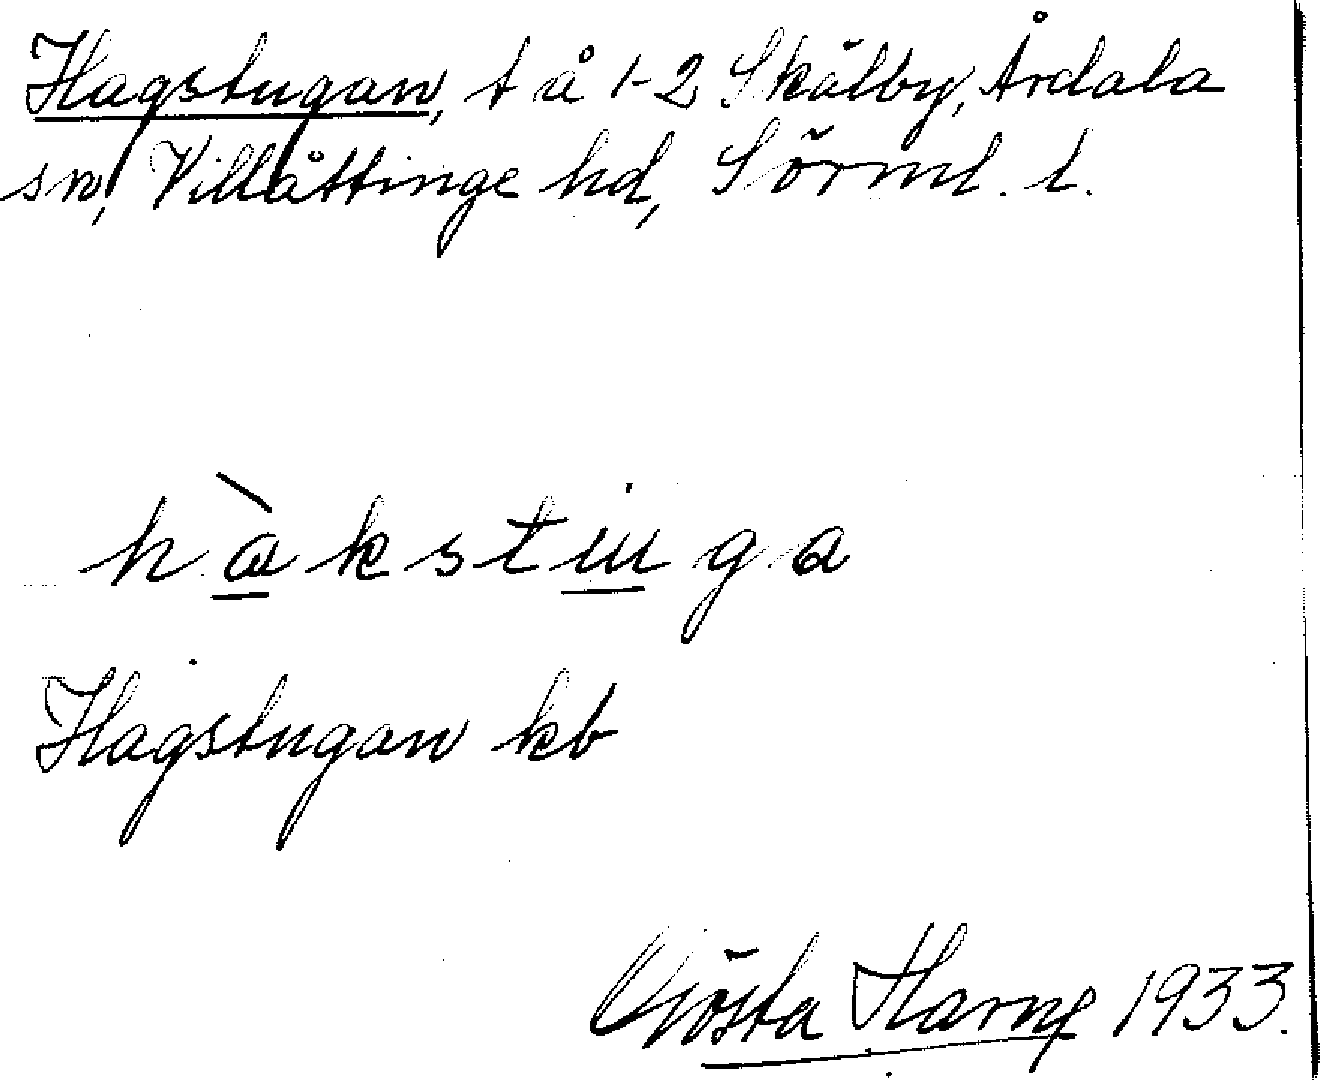 Hagstugan, t å 1-2 Skälby, Årdala
sn, Villåttinge hd, Sörml. l.
hàkstuga
Hagstugan kb
Gösta Harne 1933.